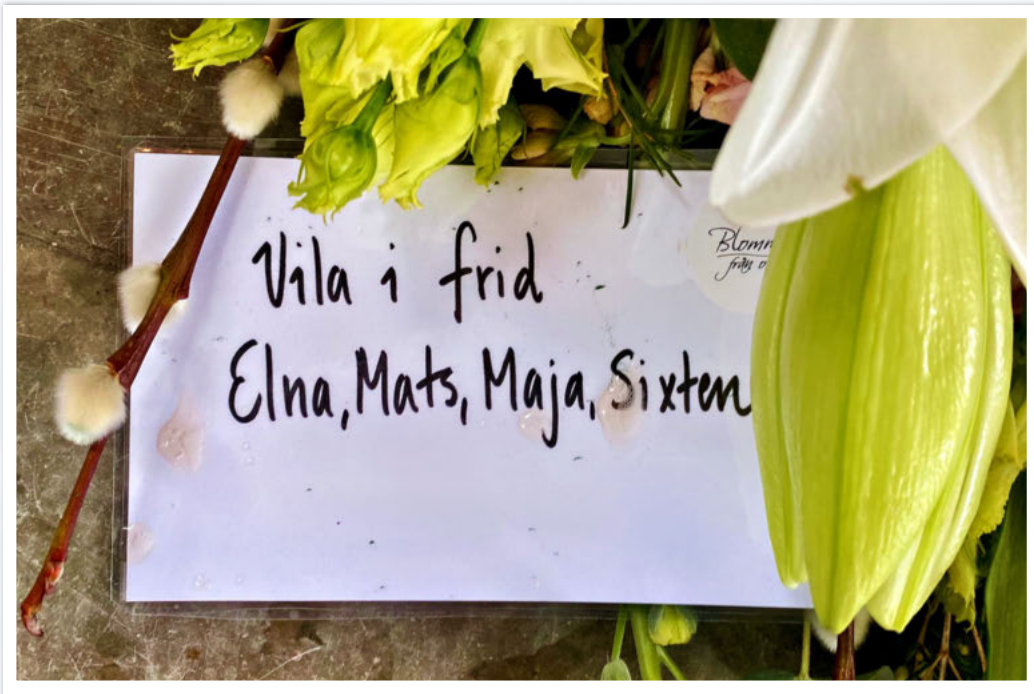 Vila i frid
Elna, Mats, Maja, Sixten
från